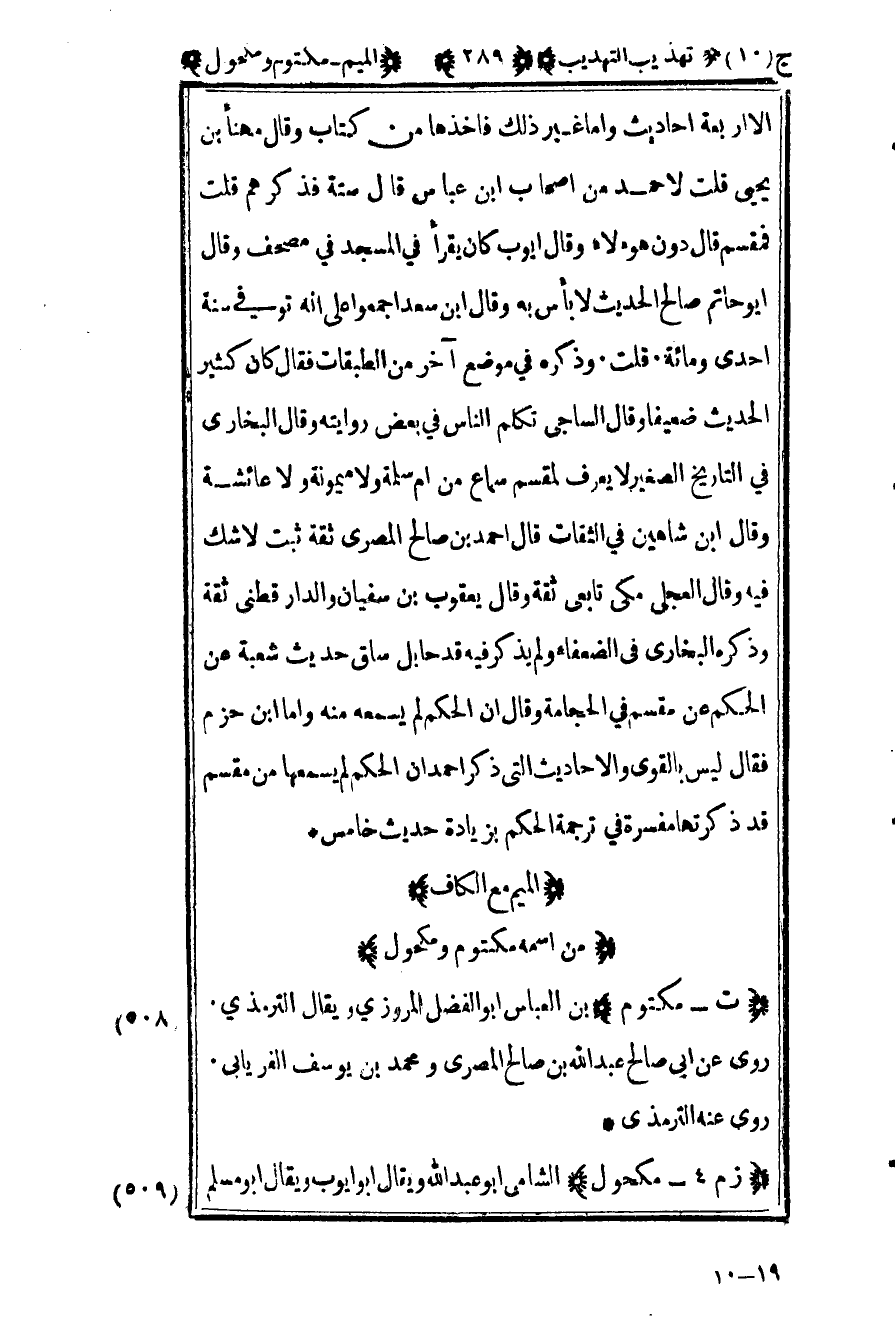 ج (١٠) ﴿ تهذيب التهذيب ﴾ ﴿ ٢٨٩ ﴾ ﴿ الميم - مكتوم ومكحول ﴾
الا اربعة احاديث واما غير ذلك فاخذها من كتاب وقال مهنأ بن
يحيى قلت لاحمد من اصحاب ابن عباس قال ستة فذكرهم قلت
فمقسم قال دون هؤلاء وقال ايوب كان يقرأ في المسجد في مصحف وقال
ابو حاتم صالح الحديث لا بأس به وقال ابن سعد اجمعوا على انه توفي سنة
احدى ومائة ٠ قلت ٠ وذكره في موضع آخر من الطبقات فقال كان كثير
الحديث ضعيفا وقال الساجى تكلم الناس في بعض روايته وقال البخارى
في التاريخ الصغير لا يعرف لمقسم سماع من ام سلمة ولا ميمونة ولا عائشة
وقال ابن شاهين في الثقات قال احمد بن صالح المصرى ثقة ثبت لا شك
فيه وقال العجلى مكى تابعى ثقة وقال يعقوب بن سفيان والدار قطنى ثقة
وذكره البخارى فى الضعفاء ولم يذكر فيه قدحا بل ساق حديث شعبة عن
الحكم عن مقسم في الحجامة وقال ان الحكم لم يسمعه منه واما ابن حزم
فقال ليس بالقوى والاحاديث التى ذكر احمد ان الحكم لم يسمعها من مقسم
قد ذكرتها مفسرة في ترجمة الحكم بزيادة حديث خامس *
﴿ الميم مع الكاف ﴾
﴿ من اسمه مكتوم ومكحول ﴾
﴿ ت ـ مكتوم ﴾ بن العباس ابو الفضل المروزي ويقال الترمذي ٠ (٥٠٨)
روى عن ابى صالح عبد الله بن صالح المصرى و محمد بن يوسف الفريابى ٠
روى عنه الترمذى *
﴿ ز م ٤ ـ مكحول ﴾ الشامى ابو عبد الله ويقال ابو ايوب ويقال ابو مسلم (٥٠٩)
١٩-١٠